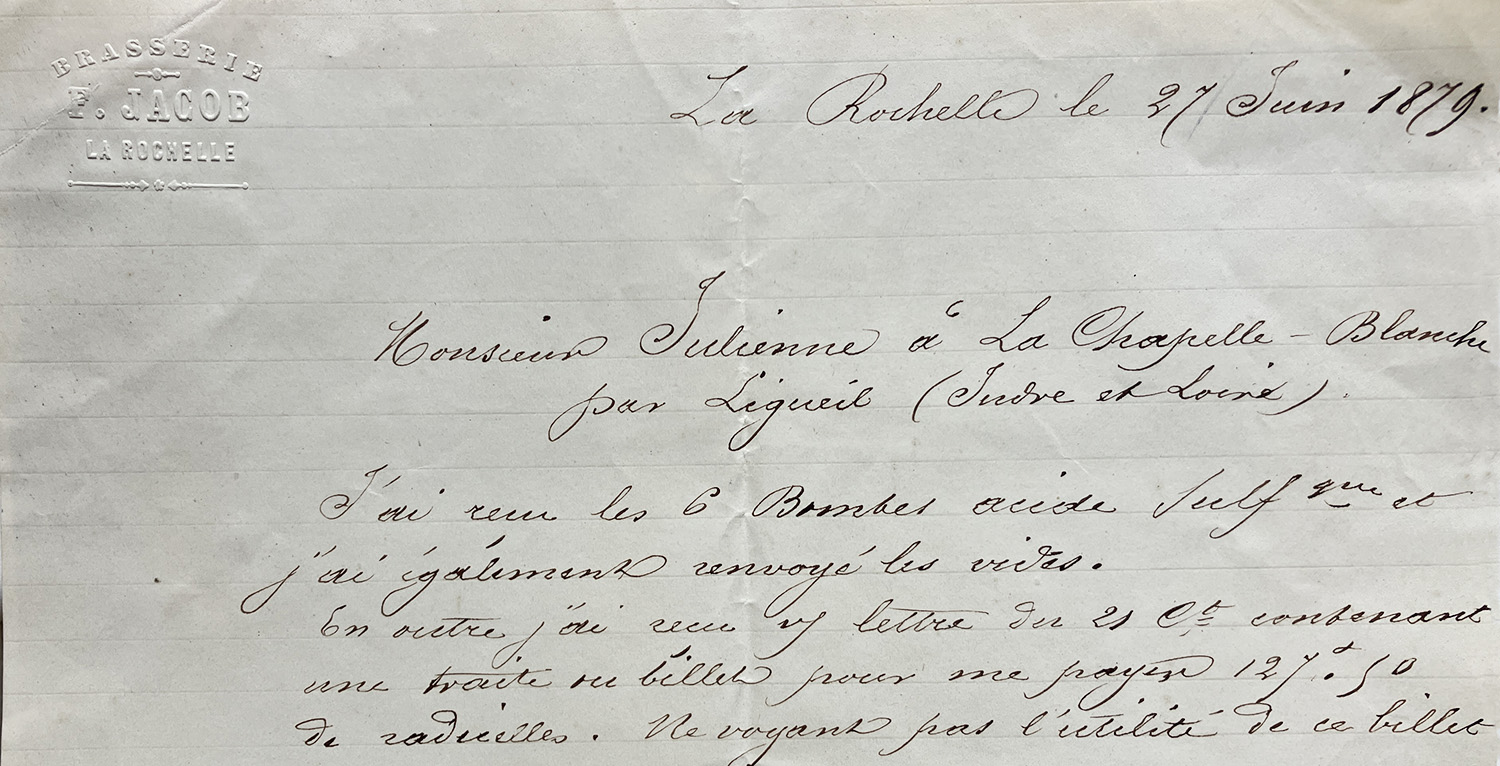 BRASSERIE
F. JACOB
LA ROCHELLE
La Rochelle le 27 Juin 1879.
Monsieur Julienne à La Chapelle - Blanche
par Ligueil (Indre et Loire).
J'ai reçu les 6 Bombes acide Sulf que et
j'ai également renvoyé les vides.
En outre j'ai reçu v/ lettre du 21 Ct contenant
une traite ou billet pour me payer 127 f. 50
de radicelles. Ne voyant pas l'utilité de ce billet